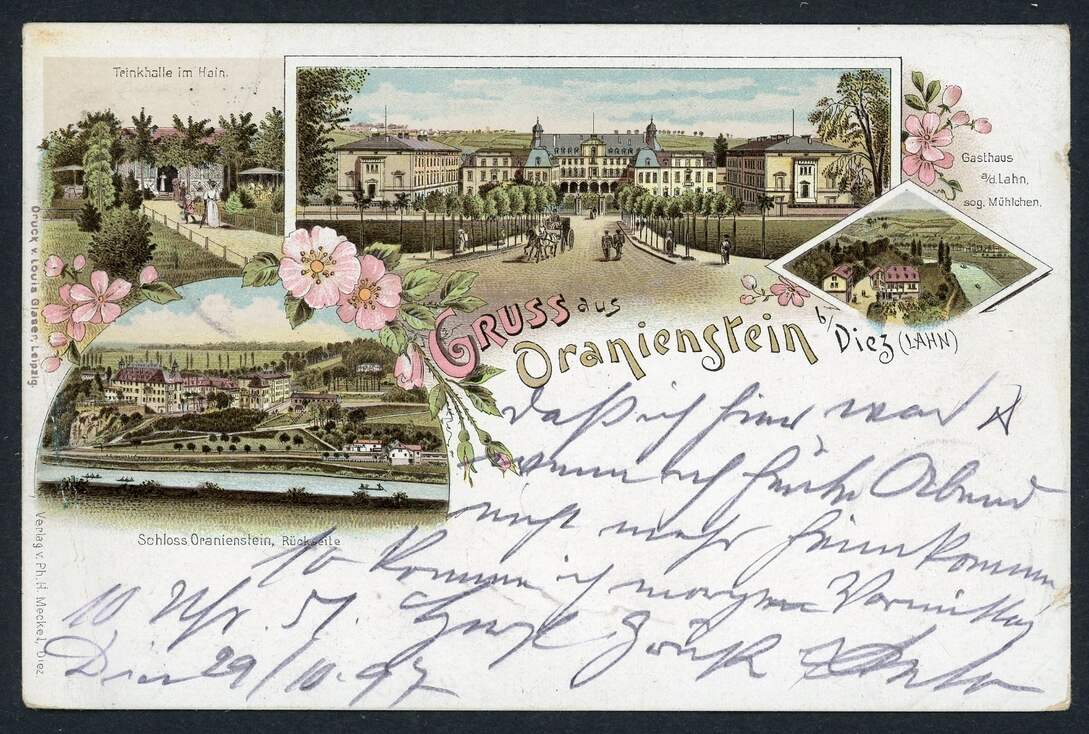 Trinkhalle im Hain.
Gasthaus
a/d. Lahn,
sog. Mühlchen.
GRUSS aus
Oranienstein b/
Diez (LAHN)
Schloss Oranienstein, Rückseite
Druck v. Louis Glaser, Leipzig.
Verlag v. Ph. H. Meckel, Diez
daß ich hier war
wenn ich heute Abend
nicht mehr heimkomme
so komme ich morgen Vormittag
10 Uhr 51.
Diez 29/10.97